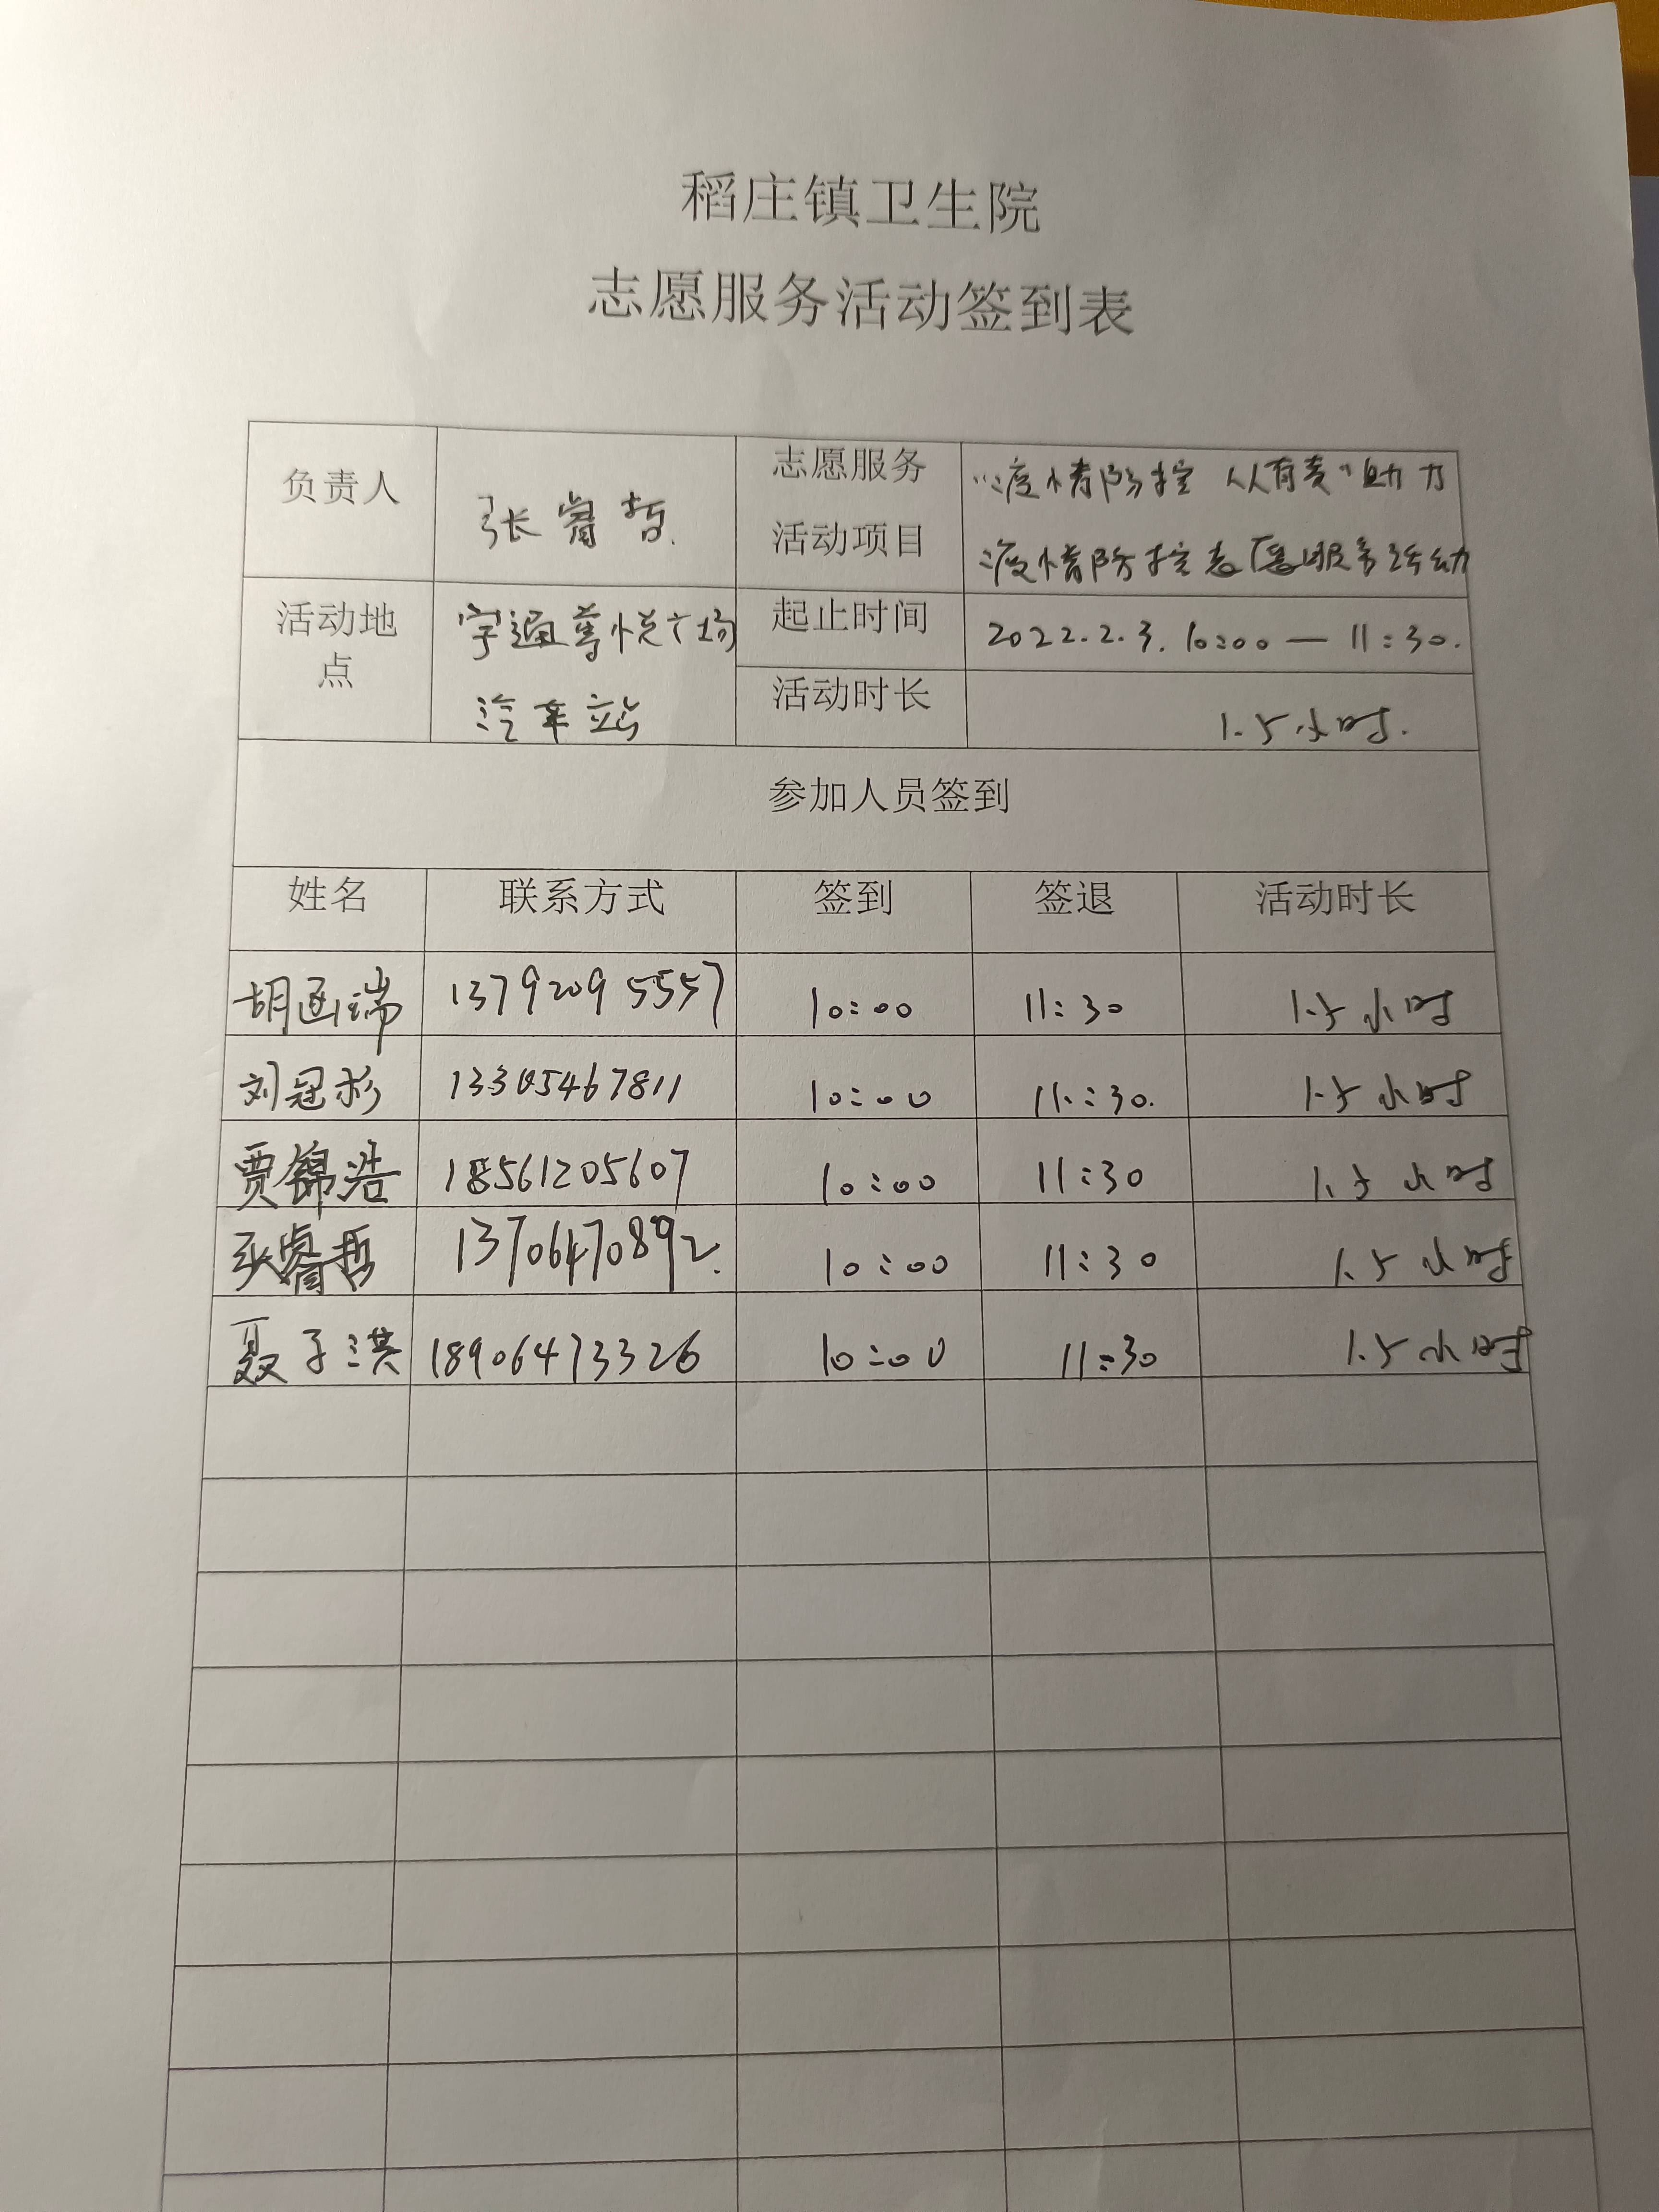 稻庄镇卫生院
志愿服务活动签到表
负责人 张睿哲 志愿服务 "疫情防控 人人有责"助力
活动项目 疫情防控志愿服务活动
活动地 宇通尊悦广场 起止时间 2022.2.3. 10:00 — 11:30.
点 汽车站 活动时长 1.5小时.
参加人员签到
姓名 联系方式 签到 签退 活动时长
胡函瑞 13792095557 10:00 11:30 1.5小时
刘冠杉 13305467811 10:00 11:30. 1.5小时
贾锦浩 18561205607 10:00 11:30 1.5小时
张睿哲 13706470892. 10:00 11:30 1.5小时
聂子淇 18906473326 10:00 11:30 1.5小时